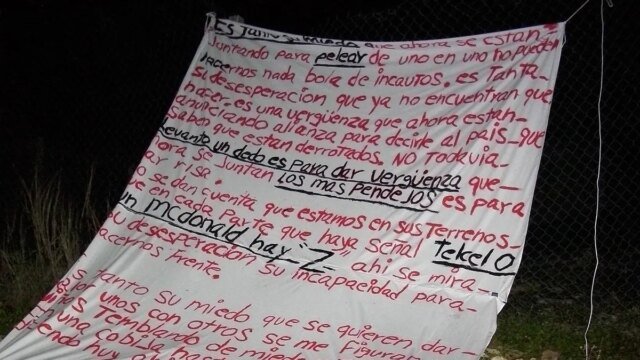 Es tanto su miedo que ahora se estan
Juntando para pelear de uno en uno no pueden
hacernos nada bola de incautos. es tanta
su desesperacion que ya no encuentran que
hacer. es una vergüenza que ahora estan
anunciando alianza para decirle al pais que
saben que estan derrotados. NO Todavia
levanto un dedo es para dar vergüenza que
ahora se juntan los mas pendejos es para
dar risa.
no se dan cuenta que estamos en sus terrenos
que en cada parte que haya señal Tekelo
un mcdonald hay "Z" ahi se mira
su desesperacion su incapacidad para
hacernos frente.
Es tanto su miedo que se quieren dar
unos con otros se me figuran
Temblando de miedo
en una cobija